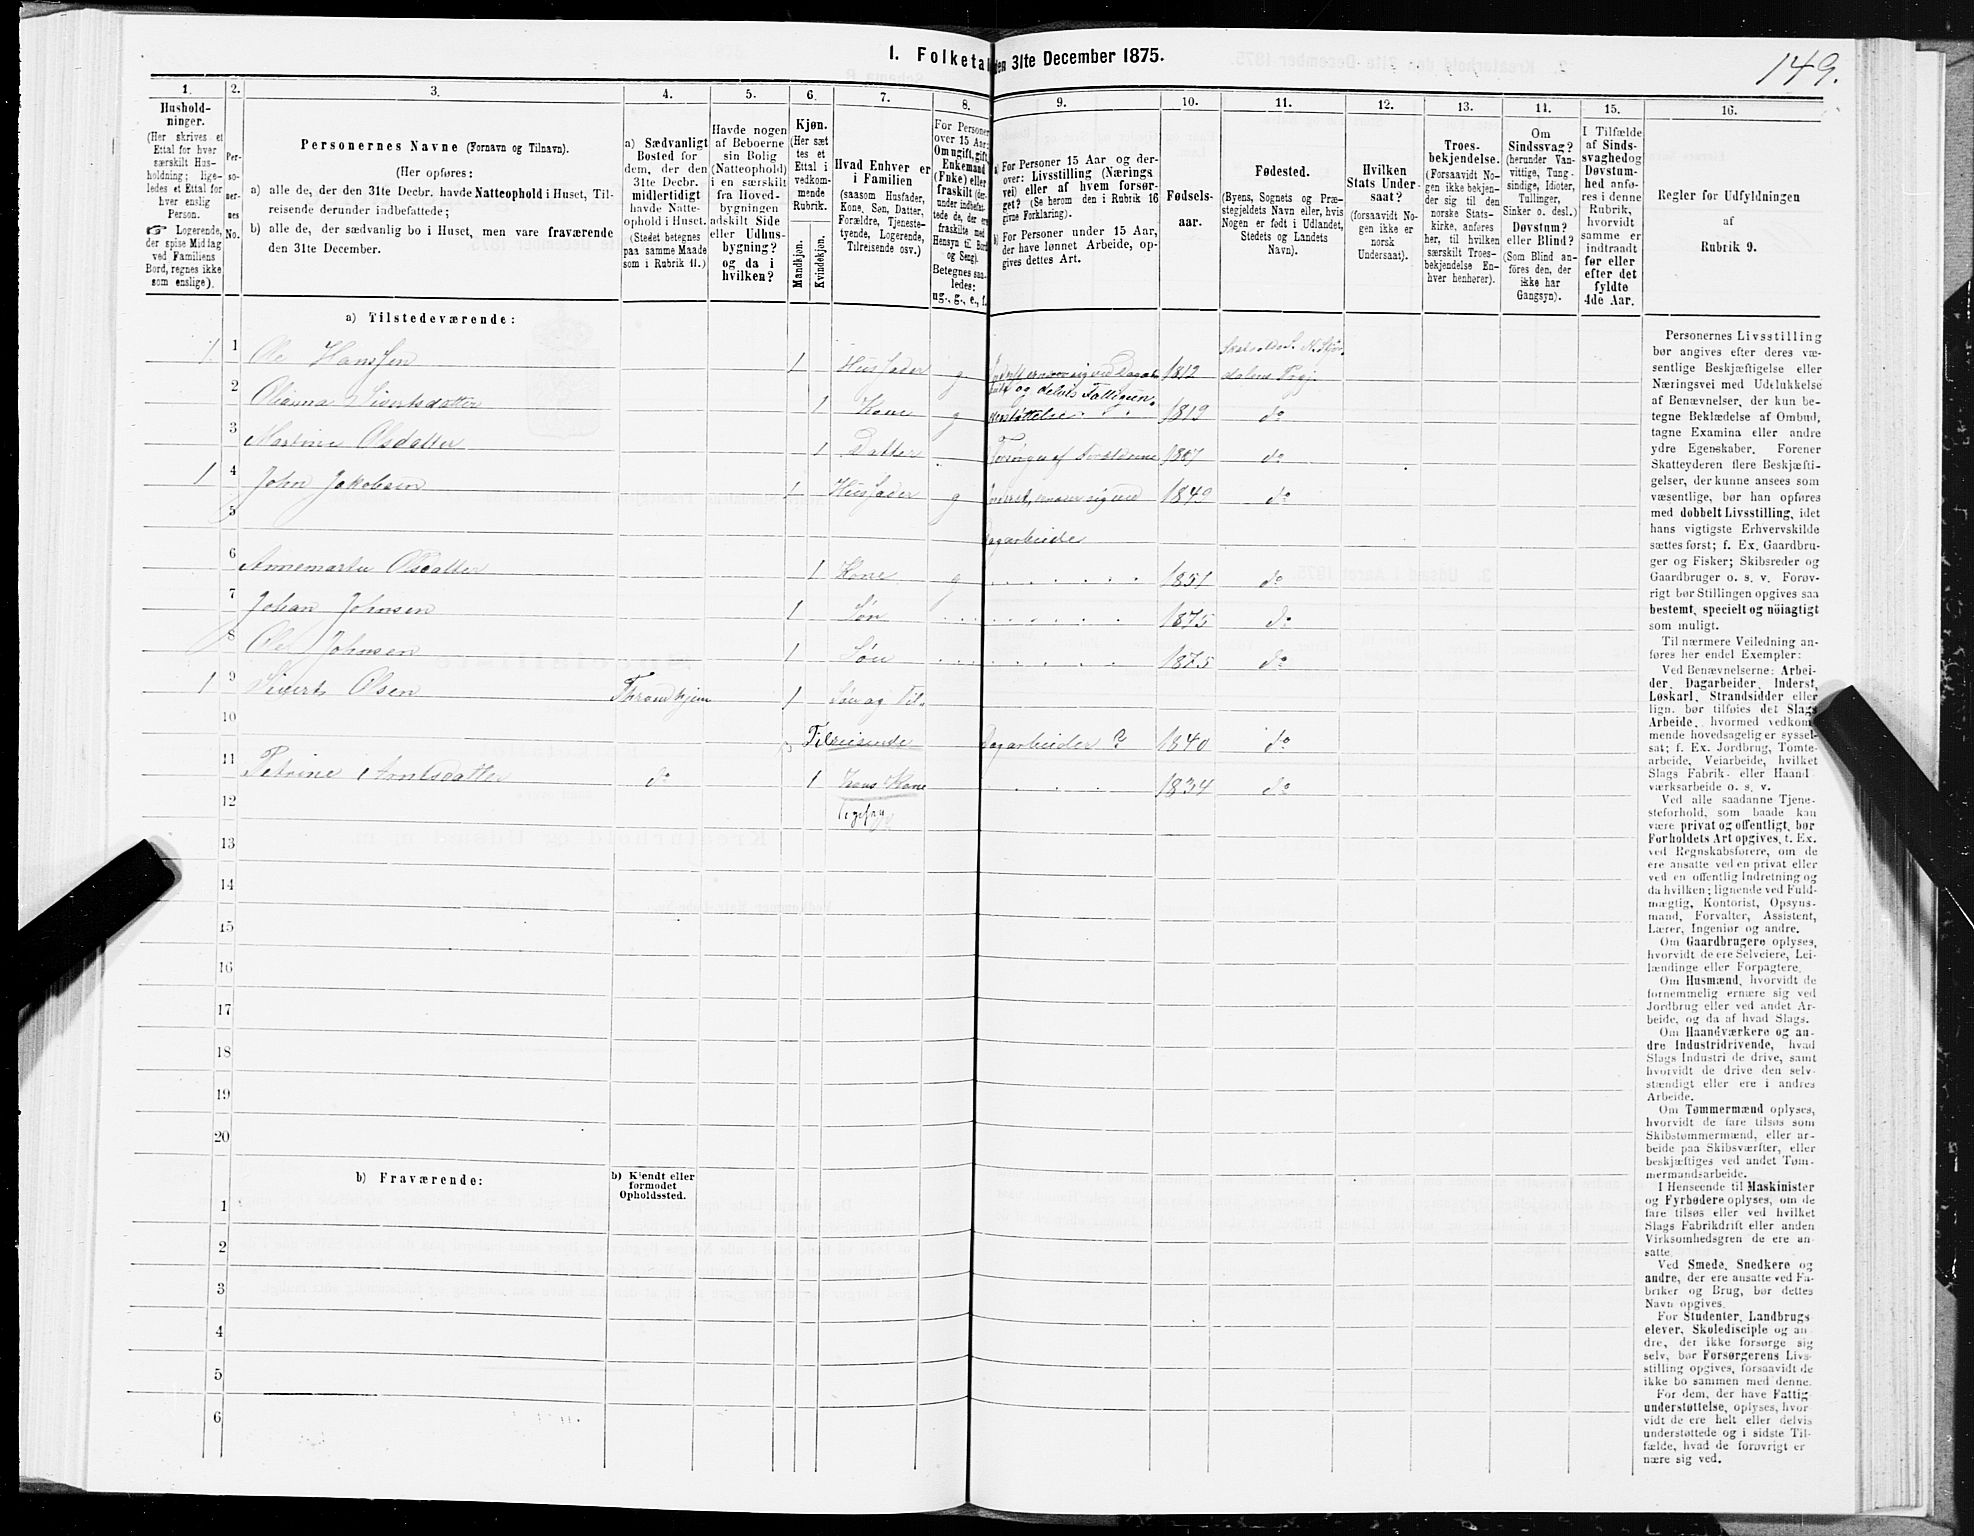 149.
1. Folketal den 31te December 1875.
1.
Hushold-
ninger.
(Her skrives et
Ettal for hver
særskilt Hus-
holdning; lige-
ledes et Ettal for
hver enslig
Person.
☞ Logerende,
der spise Middag
ved Familiens
Bord, regnes ikke
som enslige).
2.
Per-
so-
ner-
nes
No.
3.
Personernes Navne (Fornavn og Tilnavn).
(Her opføres:
a) alle de, der den 31te Decbr. havde Natteophold i Huset, Til-
reisende derunder indbefattede;
b) alle de, der sædvanlig bo i Huset, men vare fraværende
den 31te December.
4.
a) Sædvanligt
Bosted for
dem, der den
31te Decbr.
midlertidigt
havde Natte-
ophold i Huset.
(Stedet betegnes
paa samme Maade
som i Rubrik 11.)
5.
Havde nogen
af Beboerne
sin Bolig
(Natteophold)
i en særskilt
fra Hoved-
bygningen
adskilt Side
eller Udhus-
bygning?
og da i
hvilken?
6.
Kjøn.
(Her sæt
tes et
Ettal i
vedkom-
mende
Rubrik.
Mandkjøn.
Kvindekjøn.
7.
Hvad Enhver er
i Familien
(saasom Husfader,
Kone, Søn, Datter,
Forældre, Tjeneste-
tyende, Logerende,
Tilreisende osv.)
8.
For Personer
over 15 Aar:
Om ugift, gift,
Enkemand
(Enke) eller
fraskilt (der-
under indbefat-
tede de, der er
fraskilte med
Hensyn til Bord
og Seng).
Betegnes saa-
ledes:
ug., g., e., f.
9.
a) For Personer 15 Aar og der-
over: Livsstilling (Nærings
vei) eller af hvem forsør-
get? (Se herom den i Rubrik 16
givne Forklaring).
b) For Personer under 15 Aar,
der have lønnet Arbeide, op-
gives dettes Art.
10.
Fødsels-
aar.
11.
Fødested.
(Byens, Sognets og Præ-
stegjeldets Navn eller, hvis
Nogen er født i Udlandet,
Stedets og Landets
Navn).
12.
Hvilken
Stats Under-
saat?
(forsaavidt No-
gen ikke er
norsk
Undersaat).
13.
Troes-
bekjendelse.
(Forsaavidt No-
gen ikke bekjen-
der sig til den
norske Stats-
kirke, anføres
her, til hvilken
særskilt Troes-
bekjendelse En-
hver henhører).
14.
Om
Sindssvag?
(herunder Van-
vittige, Tung-
sindige, Idioter,
Tullinger,
Sinker o. desl.)
Døvstum?
eller Blind?
(Som Blind an-
føres den, der
ikke har
Gangsyn).
15.
I Tilfælde
af Sinds-
svaghedog
Døvstum-
hed anfø-
res i denne
Rubrik,
hvorvidt
samme er
indtraadt
før eller
efter det
fyldte
4de Aar.
16.
Regler for Udfyldningen
af
Rubrik 9.
a) Tilstedeværende:
1 1 Ole Hanssen 1 Husfader g 1812 dalens Prgj
2 Olianna Sivertsdatter 1 Kone g og delvis Fattigun- 1819 do
3 Martine Olsdatter 1 Datter af Forældrene do
1 4 John Jakobsen 1 Husfader g 1849 do
5 Dagarbeide
6 Olsdatter 1 Kone g 1851 do
7 Johan Johnsen 1 Søn 1875 do
8 Ole Johnsen 1 Søn 1875 do
1 9 Sivert Olsen Throndhjem 1 Søn og Til-
10 Tilreisende Dagarbeider ? 1840 do
11 Petrine Arntsdatter do 1 Hans Kone 1834 do
12
13
14
15
16
17
18
19
20
b) Fraværende:
b) Kjendt eller
formodet
Opholdssted.
1
2
3
4
5
6
Personernes Livsstilling
bør angives efter deres væ-
sentlige Beskjæftigelse eller
Næringsvei med Udelukkelse
af Benævnelser, der kun be-
tegne Beklædelse af Ombud,
tagne Examina eller andre
ydre Egenskaber. Forener
Skatteyderen flere Beskjæfti-
gelser, der kunne ansees som
væsentlige, bør han opføres
med dobbelt Livsstilling, idet
hans vigtigste Erhvervskilde
sættes først; f. Ex. Gaardbru-
ger og Fisker; Skibsreder og
Gaardbruger o. s. v. Forøv-
rigt bør Stillingen opgives saa
bestemt, specielt og nöiagtigt
som muligt.
Til nærmere Veiledning an-
føres her endel Exempler:
Ved Benævnelserne: Arbei-
der, Dagarbeider, Inderst,
Løskarl, Strandsidder eller
lign. bør tilføies det Slags
Arbeide, hvormed vedkom-
mende hovedsagelig er syssel-
sat; f. Ex. Jordbrug, Tomte-
arbeide, Veiarbeide, hvilket
Slags Fabrik- eller Haand
værksarbeide o. s. v.
Ved alle saadanne Tjene-
steforhold, som baade kan
være privat og offentligt, bør
Forholdets Art opgives, t. Ex.
ved Regnskabsførere, om de
ere ansatte ved en privat eller
ved en offentlig Indretning og
da hvilken; lignende ved Fuld-
mægtig, Kontorist, Opsyns-
mand, Forvalter, Assistent,
Lærer, Ingeniør og andre.
Om Gaardbrugere oplyses,
hvorvidt de ere Selveiere, Lei-
lændinge eller Forpagtere.
Om Husmænd, hvorvidt de
fornemmelig ernære sig ved
Jordbrug eller ved andet Ar-
beide, og da af hvad Slags.
Om Haandværkere og an-
dre Industridrivende, hvad
Slags Industri de drive, samt
hvorvidt de drive den selv-
stændigt eller ere i andres
Arbeide.
Om Tømmermænd oplyses,
hvorvidt de fare tilsøs som
Skibstømmermænd, eller ar-
beide paa Skibsværfter, eller
beskjæftiges ved andet Tøm-
mermandsarbeide.
I Henseende til Maskinister
og Fyrbødere oplyses, om de
fare tilsøs eller ved hvilket
Slags Fabrikdrift eller anden
Virksomhedsgren de ere an-
satte.
Ved Smede, Snedkere og
andre, der ere ansatte ved Fa-
briker og Brug, bør dettes
Navn opgives.
For Studenter, Landbrugs-
elever, Skoledisciple og an-
dre, der ikke forsørge sig
selv, bør Forsørgerens Livs-
stilling opgives, forsaavidt de
ikke bo sammen med denne.
For dem, der have Fattig-
understøttelse, oplyses, hvor-
vidt de ere helt eller delvis
understøttede og i sidste Til-
fælde, hvad de forøvrigt er
nære sig ved.